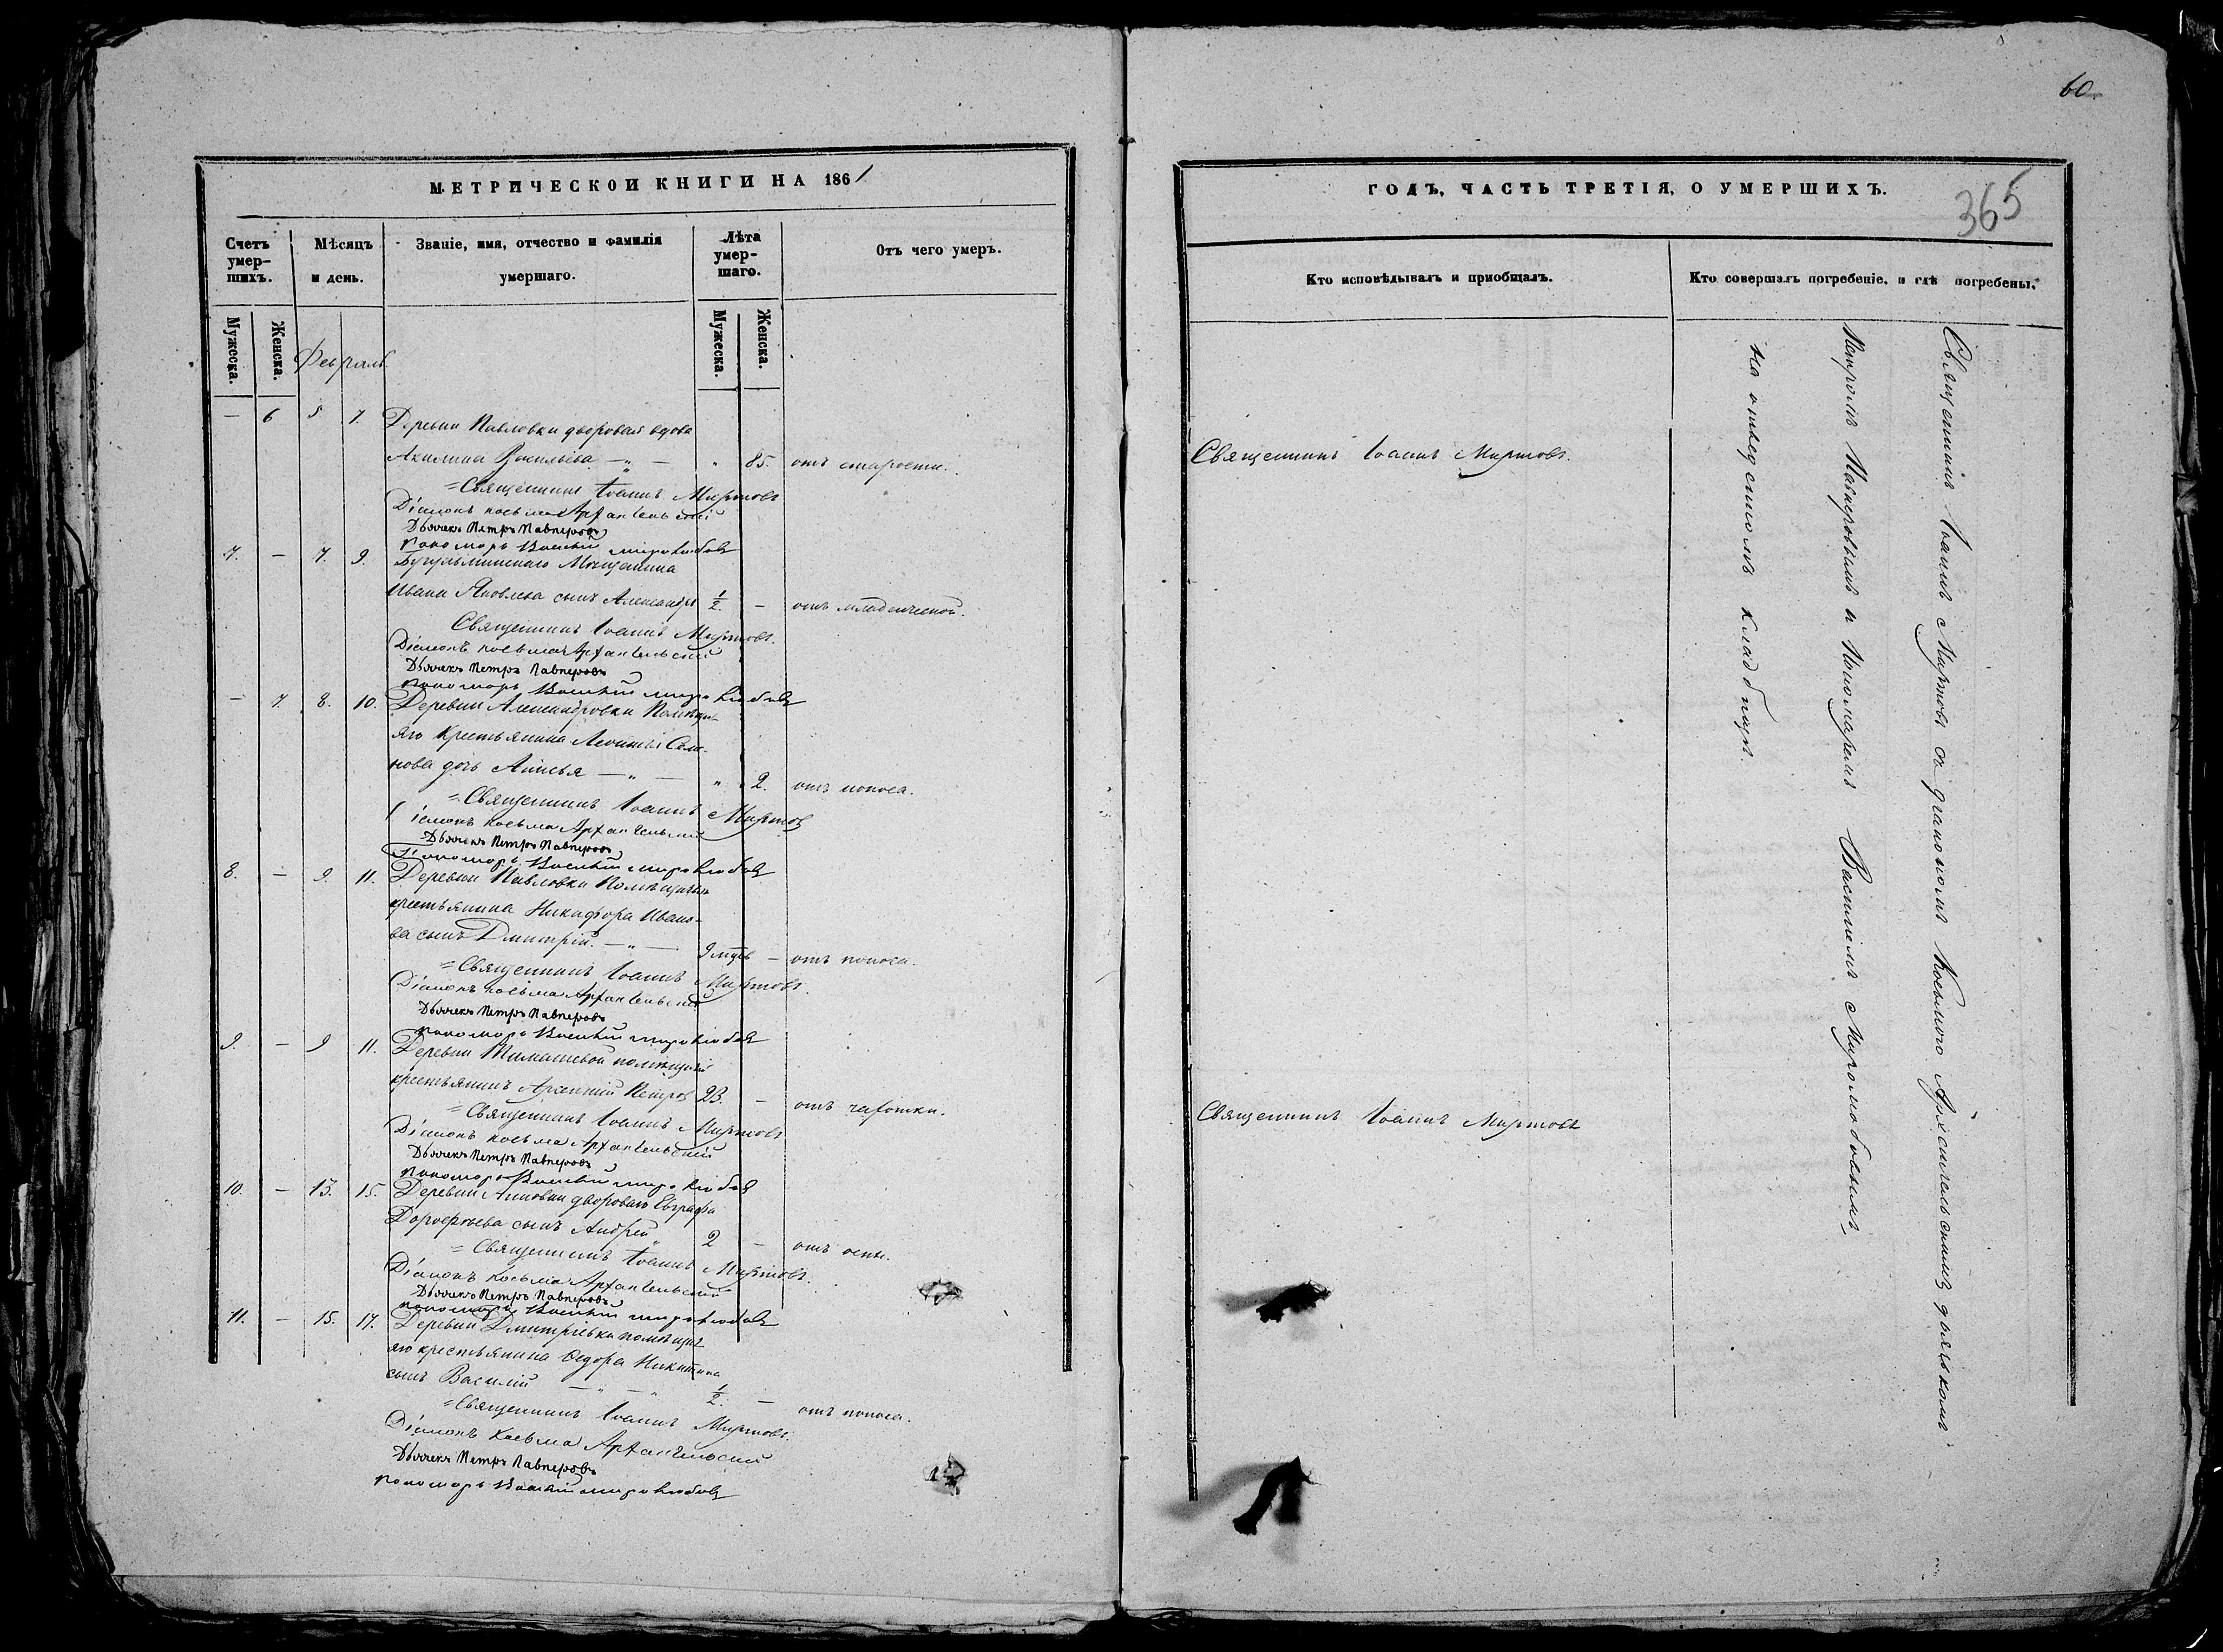 60.
МЕТРИЧЕСКОЙ КНИГИ НА 1861
ГОДЪ, ЧАСТЬ ТРЕТІЯ, О УМЕРШИХЪ.
365
Счетъ умер-шихъ.
Мѣсяцъ и день.
Званіе, имя, отчество и фамилія умершаго.
Лѣта умер-шаго.
Отъ чего умеръ.
Кто исповѣдывалъ и приобщалъ.
Кто совершалъ погребеніе, и гдѣ погребены.
Мужеска. Женска. Мужеска. Женска.
Февраль
— 6 5 7. Деревни Павловки дворовая вдова
Акилина Васильева — „ — „ 85. отъ старости. Священникъ Іоаннъ Миртовъ.
= Священникъ Іоаннъ Миртовъ
Діаконъ Косьма Архангельскій
Дьячекъ Петръ Павперовъ
Пономарь Василій Миролюбовъ
7. — 7. 9. Бугульминскаго Мѣщанина
Ивана Яковлева сынъ Александръ 1/2. — отъ младенческой.
Священникъ Іоаннъ Миртовъ.
Діаконъ Косьма Архангельскій
Дьячекъ Петръ Павперовъ
Пономарь Василій Миролюбовъ
— 7. 8. 10. Деревни Александровки Помѣщичь-
яго крестьянина Леонтья Семе-
нова дочь Анисья — „ — „ 2. отъ поноса.
= Священникъ Іоаннъ Миртовъ
Діаконъ Косьма Архангельскій
Дьячекъ Петръ Павперовъ
Пономарь Василій Миролюбовъ
8. — 9. 11. Деревни Павловки Помѣщичьяго
крестьянина Никифора Ивано-
ва сынъ Дмитрій. — „ — 9 мцвъ — отъ поноса.
= Священникъ Іоаннъ Миртовъ.
Діаконъ Косьма Архангельскій
Дьячекъ Петръ Павперовъ
Пономарь Василій Миролюбовъ
9. — 9 11. Деревни Тимашевой помѣщичій
крестьянинъ Арсентій Петровъ 23. — отъ чахотки. Священникъ Іоаннъ Миртовъ
= Священникъ Іоаннъ Миртовъ
Діаконъ Косьма Архангельскій
Дьячекъ Петръ Павперовъ
Пономарь Василій Миролюбовъ
10. — 13. 15. Деревни Анновки двороваго Евграфа
Дорофѣева сынъ Андрей 2 — отъ оспы.
= Священникъ Іоаннъ Миртовъ.
Діаконъ Косьма Архангельскій
Дьячекъ Петръ Павперовъ
Пономарь Василій Миролюбовъ
11. — 15. 17. Деревни Дмитріевки помѣщичь
яго крестьянина Ѳедора Никитина
сынъ Василій — „ — „ 1/2. — отъ поноса.
= Священникъ Іоаннъ Миртовъ.
Діаконъ Косьма Архангельскій
Дьячекъ Петръ Павперовъ
Пономарь Василій Миролюбовъ
Священникъ Іоаннъ Миртовъ съ діакономъ Косьмою Архангельскимъ дьячькомъ
Петромъ Павперовымъ и Пономаремъ Василіемъ Миролюбовымъ,
на отведенномъ кладбищѣ.